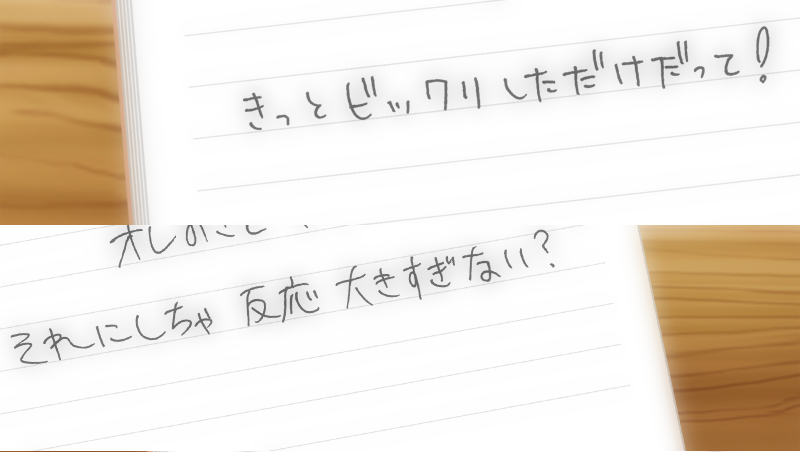 きっとビックリしただけだって!
それにしちゃ反応大きすぎない?